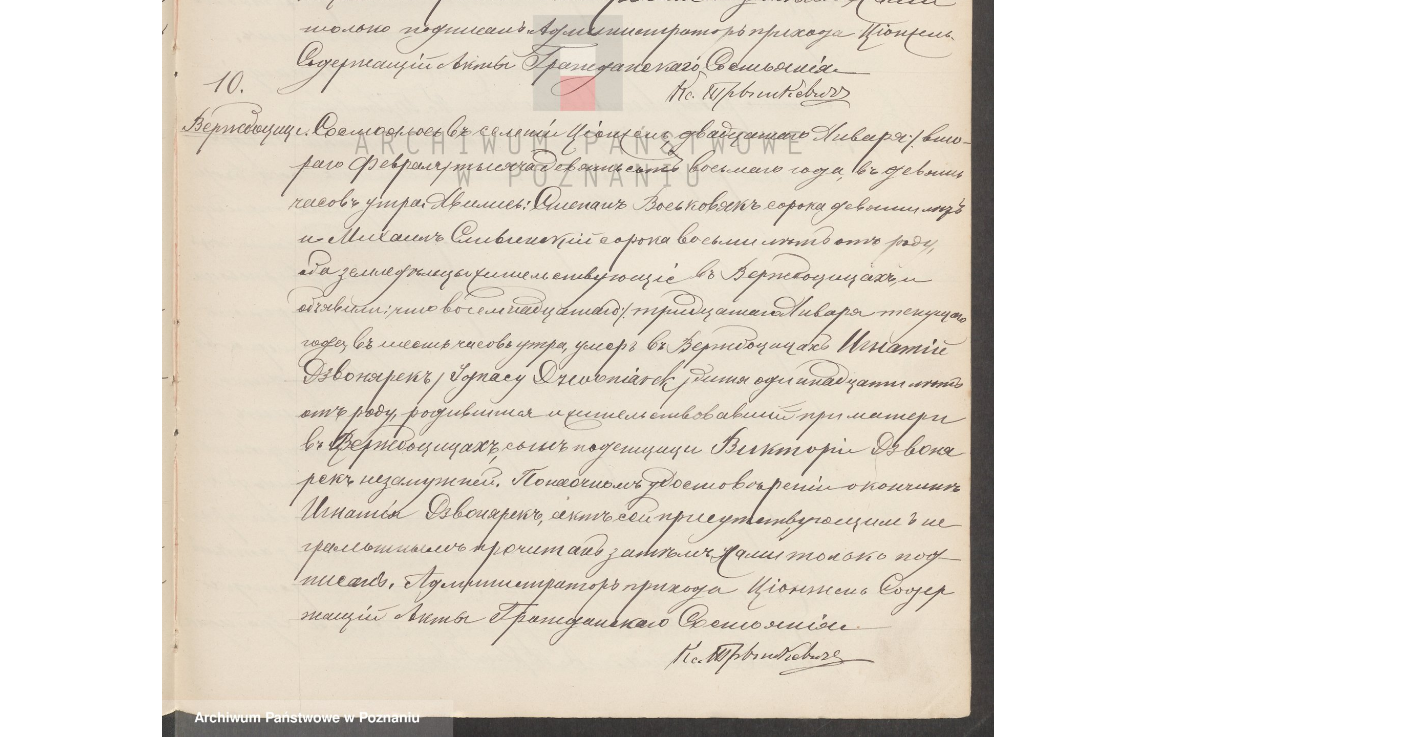 только подписанъ Администраторъ прихода Цiонжень
Содержащiй Акты Гражданскаго Состоянiя
Кс.
10.
Вержбоцице. Состоялось въ селенiи Цiонжень двадцатаго Января / вто-
раго Февраля тысяча девятьсотъ восьмаго года, въ девять
часовъ утра. Явились: Степанъ Воськовякъ сорока девяти лѣтъ
и Михаилъ сорока восьми лѣтъ отъ роду,
оба земледѣльцы жительствующiе въ Вержбоцицахъ, и
объявили; что восемнадцатаго / тридцатаго Января текущаго
года, въ шесть часовъ утра, умеръ въ Вержбоцицахъ Игнатiй
Дзвонярекъ / Ignacy Dzwoniarek / дитя одинадцати лѣтъ
отъ роду, родившiйся и жительствовавшiй при матери
въ Вержбоцицахъ, сынъ поденщицы Викторiи Дзвоня
рекъ незамужней. По наочномъ удостовѣренiи о кончинѣ
Игнатiя Дзвонярекъ, актъ сей присутствующимъ не
грамотнымъ прочитанъ затѣмъ Нами только под
писанъ. Администраторъ прихода Цiонжень Содер
жащiй Акты Гражданскаго Состоянiя
Кс.
ARCHIWUM PAŃSTWOWE
W POZNANIU
Archiwum Państwowe w Poznaniu